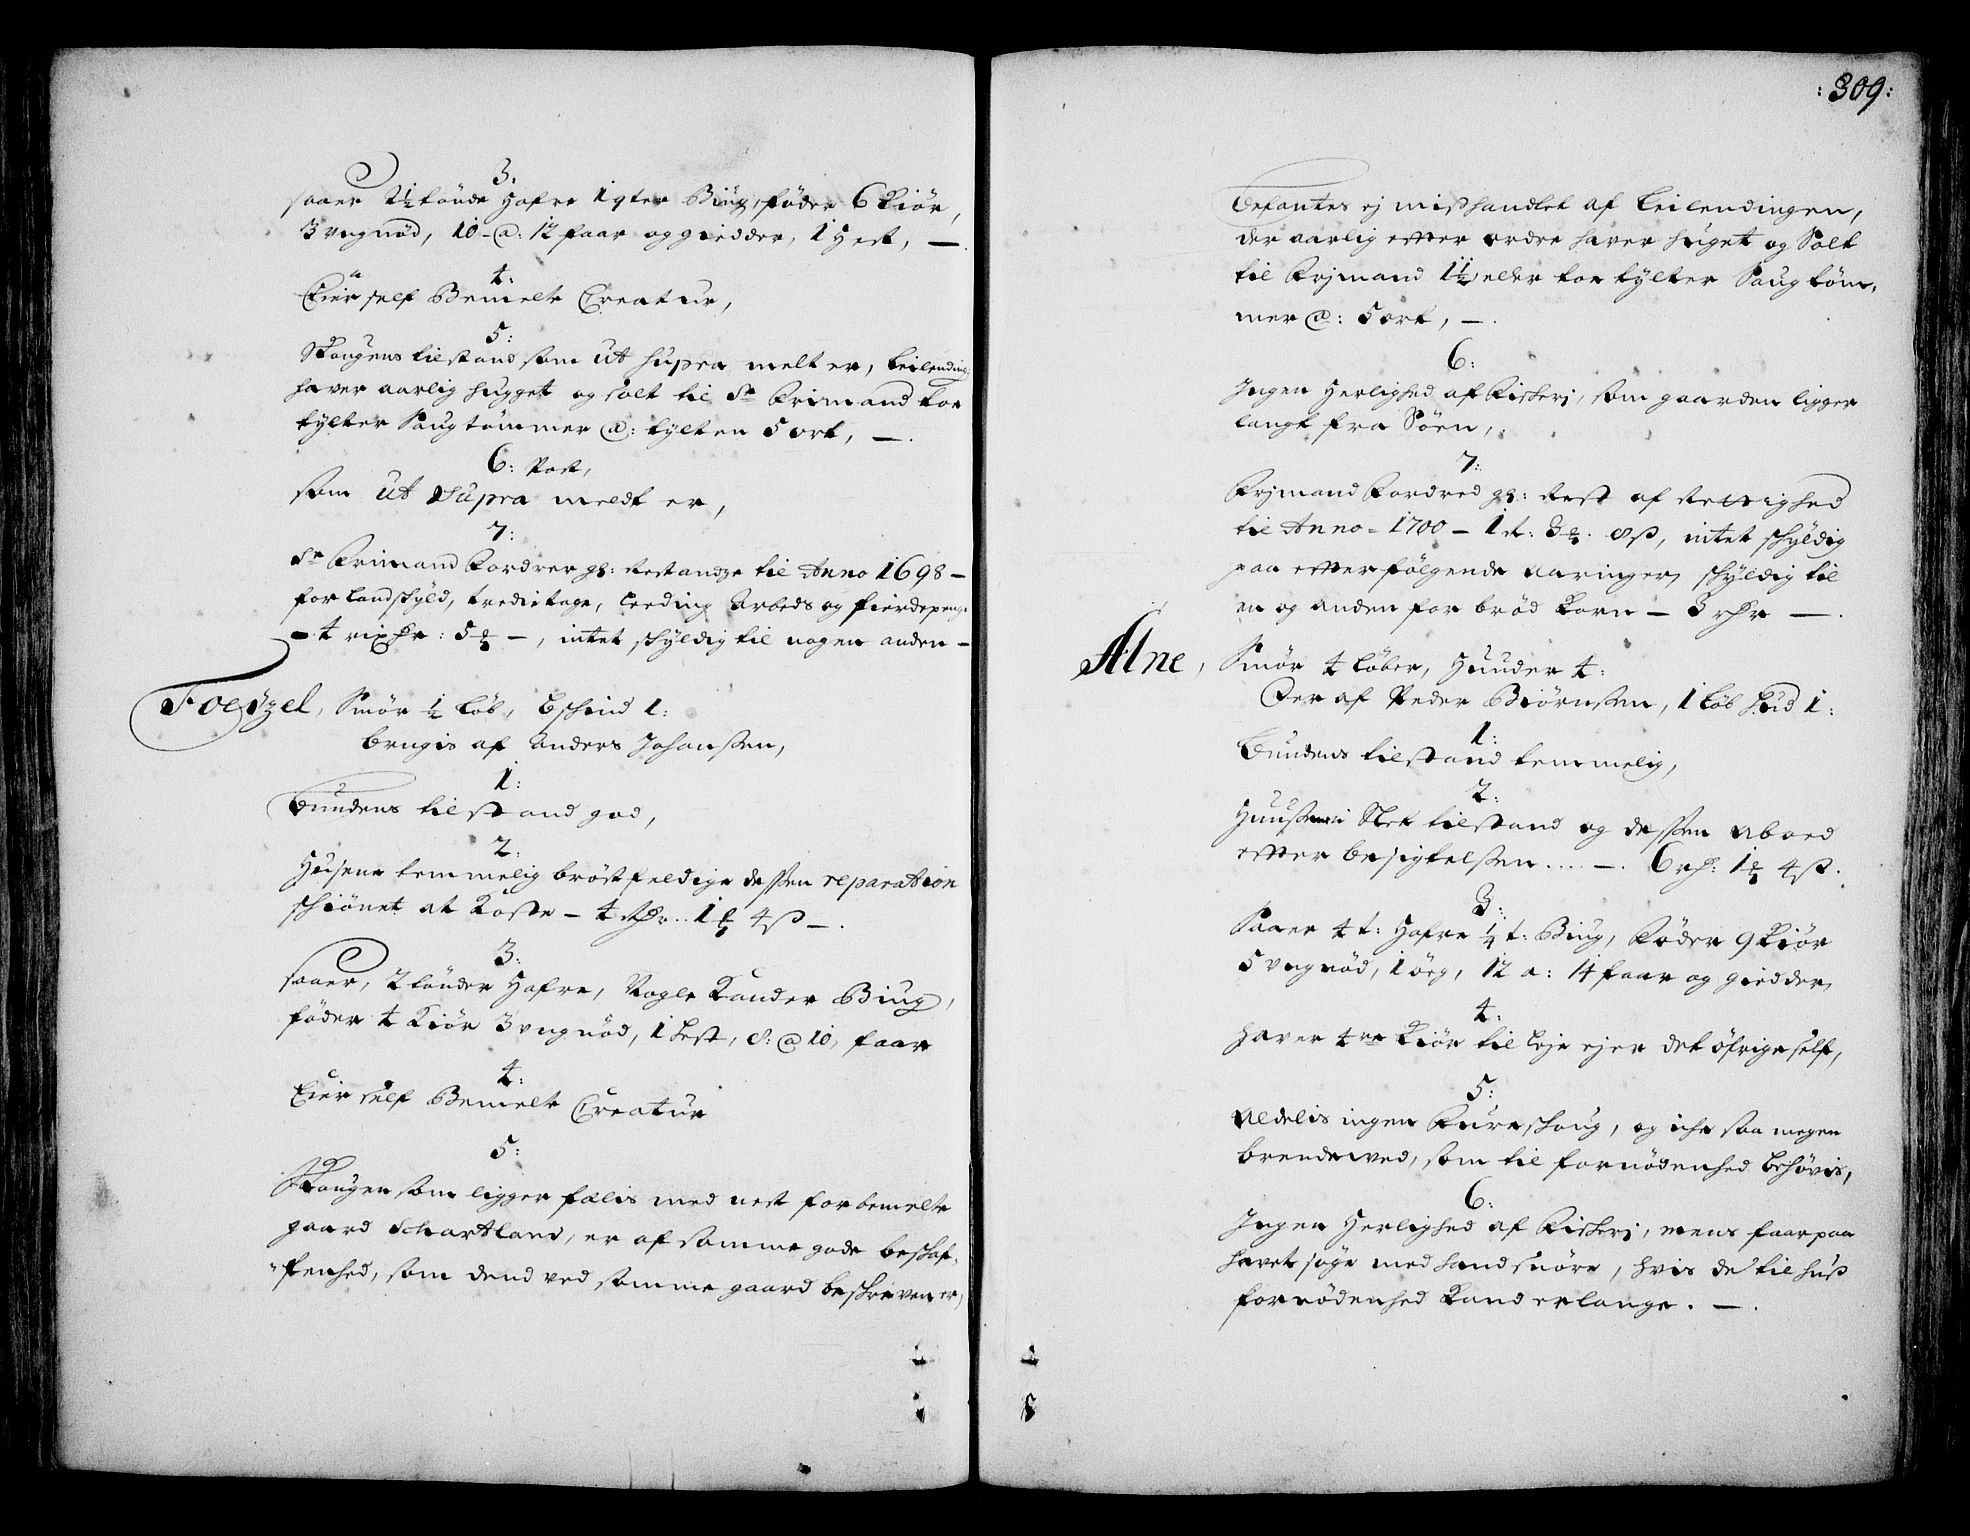 3:
saaer 2½ tønde Hafre 1 qter Biug, føder 6 Kiør,
3 ungnød, 10 a: 12 faar og giedder, 1 Hest, —
4:
Eier self Bemelte Creatur,
5:
Skougens tilstand som ut supra melt er, Leilending
haver aarlig hugget og solt til Sr Frimand toe
tylter Saugtømmer @: tylten 5 ort, —.
6: Post,
som ut supra meldt er,
7:
Sr Frimand Fordrer Restandze til Anno 1698 —
for Landskyld, tredietage, Leeding Arbeds og fierdepenge
4 rixdr: 5 —, intet skyldig til nogen anden —
Smør ½ Løb, Gschind 1:
brugis af Anders Johanssen,
1:
Bundens tilstand god,
2:
Husene temmelig brøstfeldige dessen reparation
schiønet at Koste — 4 rdr. 1 4 ß —.
3:
saaer, 2 tønder Hafre, Nogle Kander Biug,
føder 4 Kiør 3 ungnød, 1 Hest, 8: @ 10, faar
4:
Eier self Bemelte Creatur
5:
Skougen som ligger fælis med nest forbemelte
gaard Schartland, er af somme gode beskaf-
"fenhed, som dend ved somme gaard beskreven er,
:309:
Befantes ej mishandlet af Leilendingen,
der aarlig efter ordre haver huget og Solt
til Frjmand 1½ eller toe tylter Saugtøm-
mer @: 5 ort, —.
6:
Ingen Herlighed af Fiskerj, som gaarden ligger
langt fra Søen,
7:
Frjmand Fordred Rest af Rettighed
til Anno = 1700 — 1 rt: 3 8 ß, intet skyldig
paa efterfølgende aaringer, skyldig til
en og anden for brød Korn — 3 rdr —.
Alne, Smør 4 Løber, Huuder 4:
Der af Peder Biørnssen, 1 Løb Hud 1:
1:
Bundens tilstand temmelig,
2:
Slet tilstand og dessen Aboed
efter besigtelssen .... —. 6 rd: 1 4 ß.
3:
Saaer 4 t: Hafre ¼ t: Biug, Føder 9 Kiør
5 ungnød, 1 øeg, 12 a: 14 faar og giedder,
4:
haver 4re Kiør til Leje ejer det øfrige self,
5:
Aldelis ingen Fureskoug, og iche saa megen
brendeved, som til fornødenhed behøvis,
6:
Ingen Herlighed af Fiskerj, mens faar paa
havet søge med handsnøre, hvis de til huß
fornødenhed Kand erlange. —.